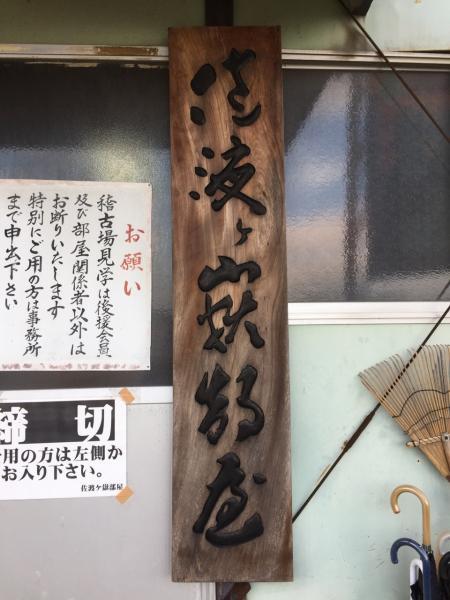 佐渡ヶ嶽部屋
お願い
稽古場見学は後援会員
及び部屋関係者以外は
お断りいたします
特別にご用の方は事務所
まで申出下さい
締切
用の方は左側か
お入り下さい。
佐渡ケ嶽部屋